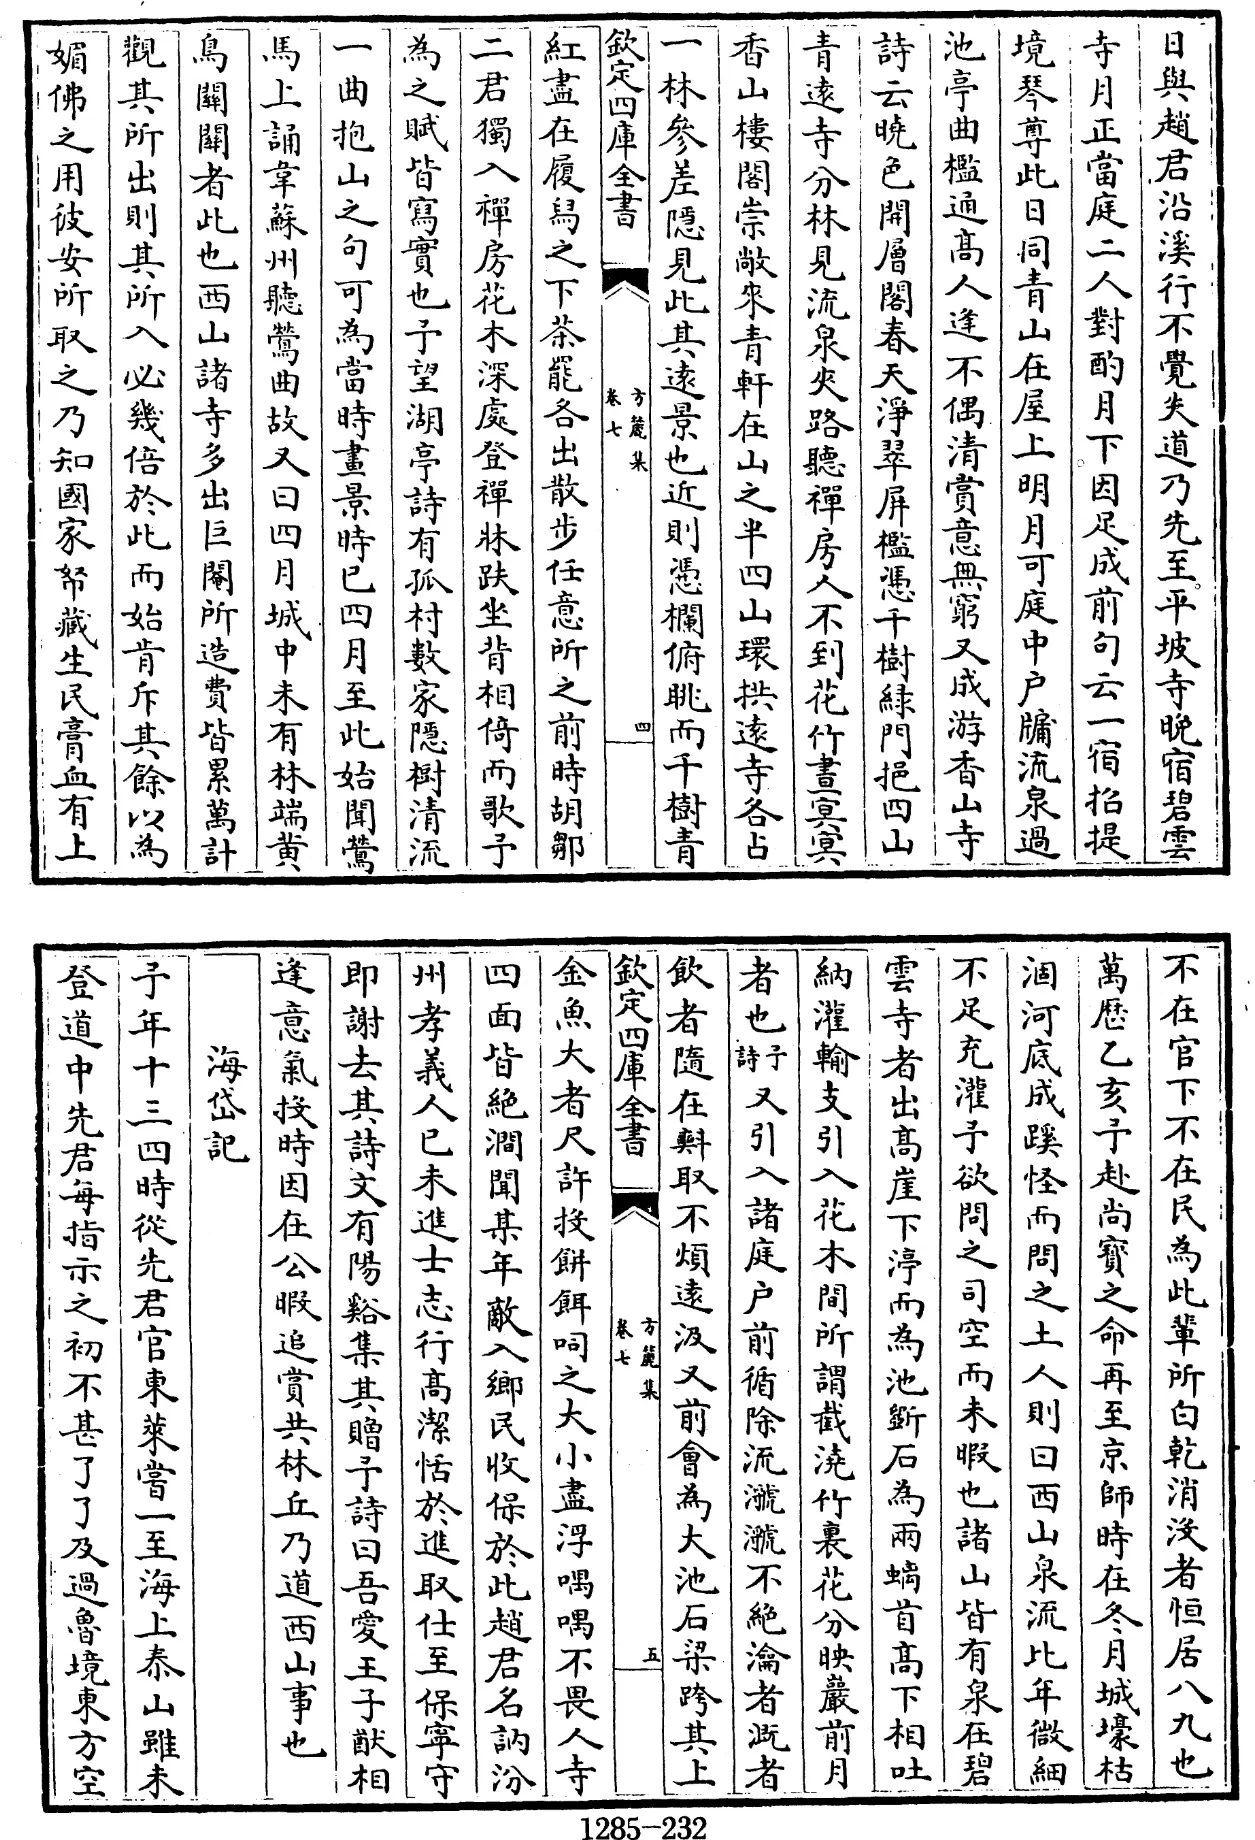 日與趙君沿溪行不覺失道乃先至平坡寺晚宿碧雲
寺月正當庭二人對酌月下因足成前句云一宿招提
境琴尊此日同青山在屋上明月可庭中户牖流泉過
池亭曲檻通髙人逢不偶清賞意無窮又成游香山寺
詩云曉色開層閣春天淨翠屏檻憑千樹緑門挹四山
青逺寺分林見流泉夾路聽禪房人不到花竹晝冥冥
香山樓閣崇敞來青軒在山之半四山環拱逺寺各占
一林參差隱見此其逺景也近則憑欄俯眺而千樹青
欽定四庫全書
方麓集
卷七
四
紅盡在履舄之下茶罷各出散步任意所之前時胡鄒
二君獨入禪房花木深處登禪牀趺坐背相倚而歌予
為之賦皆寫實也予望湖亭詩有孤村數家隱樹清流
一曲抱山之句可為當時畫景時已四月至此始聞鶯
馬上誦韋蘇州聽鶯曲故又曰四月城中未有林端黄
鳥關關者此也西山諸寺多出巨閹所造費皆累萬計
觀其所出則其所入必幾倍於此而始肯斥其餘以為
媚佛之用彼安所取之乃知國家帑藏生民膏血有上
不在官下不在民為此輩所白乾消沒者恒居八九也
萬厯乙亥予赴尚寶之命再至京師時在冬月城壕枯
涸河底成蹊怪而問之土人則曰西山泉流比年微細
不足充灌予欲問之司空而未暇也諸山皆有泉在碧
雲寺者出髙崖下渟而為池斵石為兩螭首髙下相吐
納灌輸支引入花木間所謂截澆竹裏花分映巖前月
者也予詩又引入諸庭户前循除流㶁㶁不絶瀹者溉者
飲者隨在㪺取不煩逺汲又前會為大池石梁跨其上
欽定四庫全書
方麓集
卷七
五
金魚大者尺許投餅餌呞之大小盡浮喁喁不畏人寺
四面皆絶澗聞某年敵入鄉民收保於此趙君名訥汾
州孝義人己未進士志行髙潔恬於進取仕至保寧守
即謝去其詩文有陽谿集其贈予詩曰吾愛王子猷相
逢意氣投時因在公暇追賞共林丘乃道西山事也
海岱記
予年十三四時從先君官東萊嘗一至海上泰山雖未
登道中先君每指示之初不甚了了及過魯境東方空
1285-232